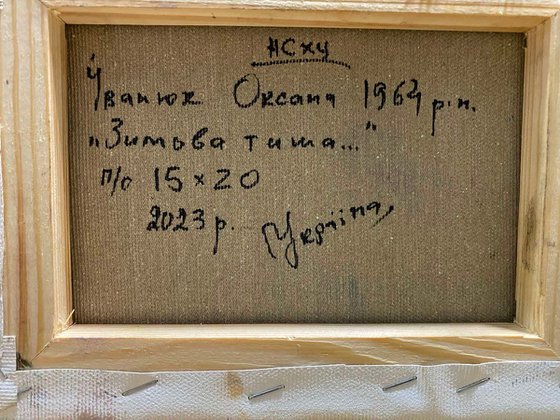 НСХУ
Іванюк Оксана 1964 р.н.
"Зимова тиша..."
п/о 15×20
2023 р. Україна